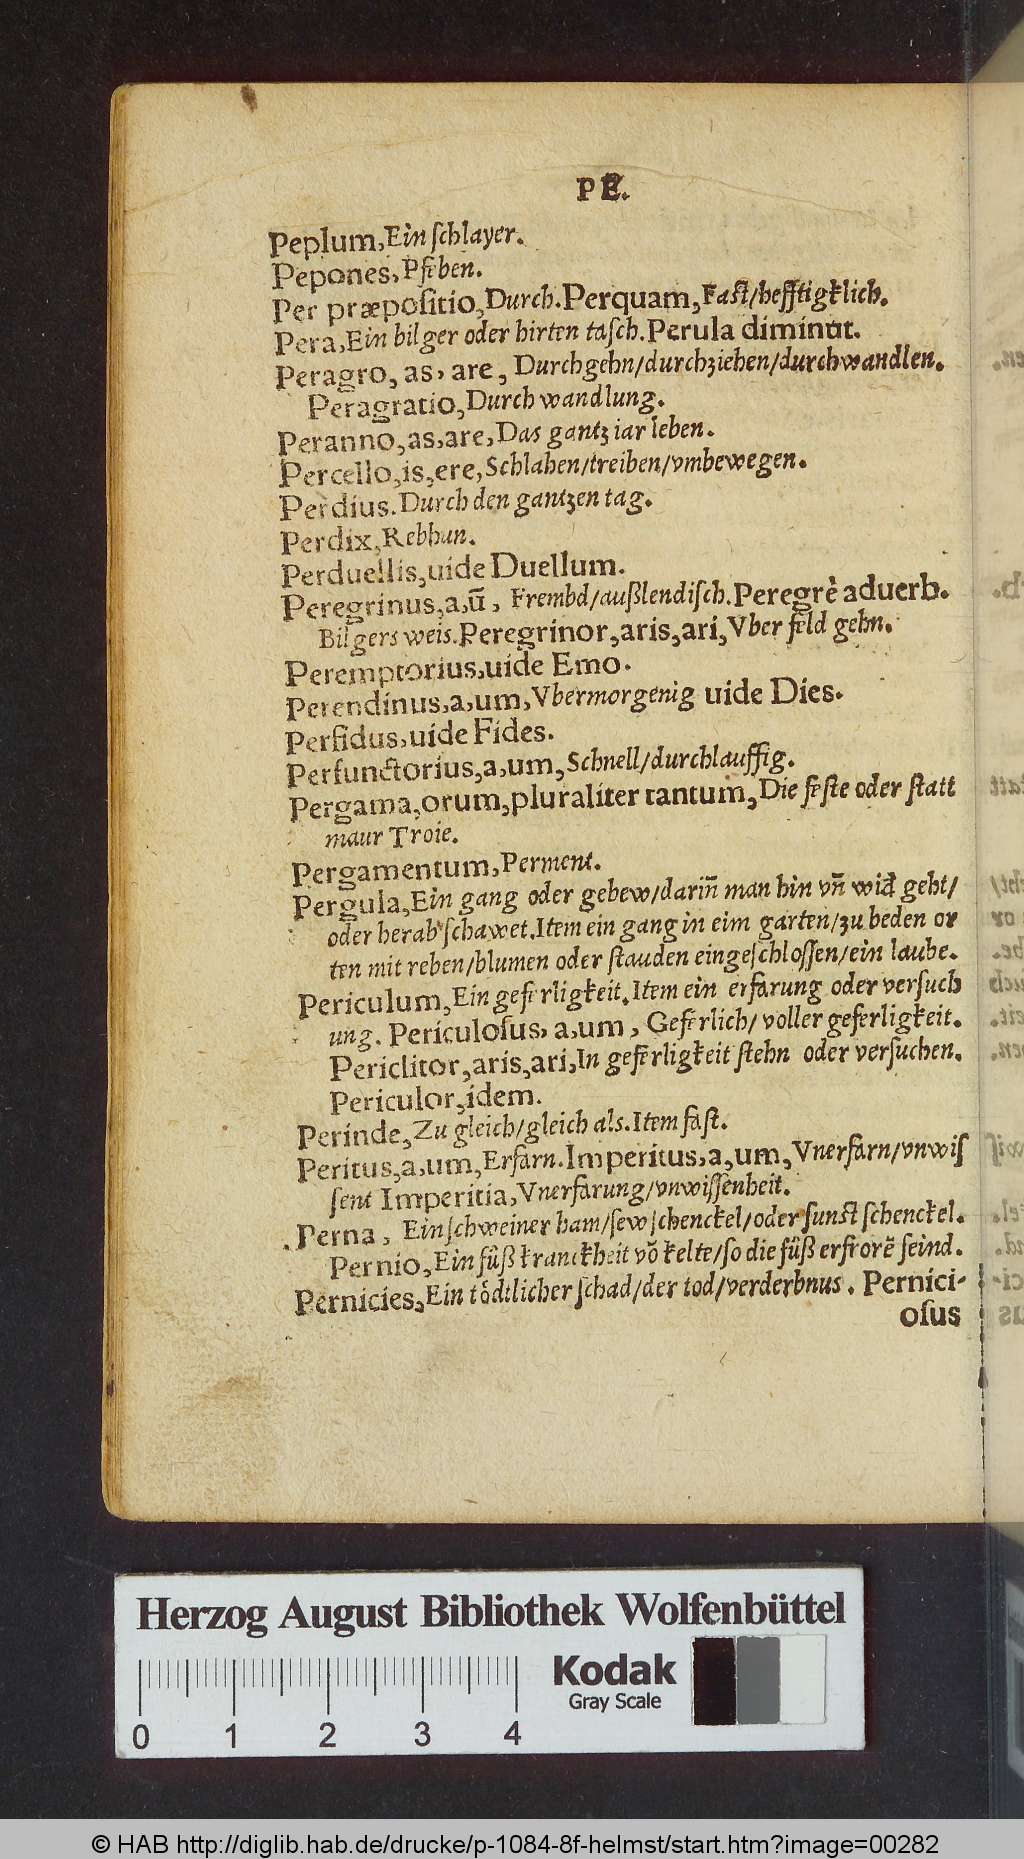 PE.
Peplum, Ein ſchlayer.
Pepones, Pfeben.
Per præpoſitio, Durch. Perquam, Faſt/hefftigklich.
Pera, Ein bilger oder hirten taſch. Perula diminut.
Peragro, as, are, Durchgehn/durchziehen/durchwandlen.
Peragratio, Durch wandlung.
Peranno, as, are, Das gantz iar leben.
Percello, is, ere, Schlahen/treiben/vmbewegen.
Perdius. Durch den gantzen tag.
Perdix, Rebhun.
Perduellis, uide Duellum.
Peregrinus, a, ū, Frembd/außlendiſch. Peregrè aduerb.
Bilgers weis. Peregrinor, aris, ari, Vber feld gehn.
Peremptorius, uide Emo.
Perendinus, a, um, Vbermorgenig uide Dies.
Perfidus, uide Fides.
Perfunctorius, a, um, Schnell/durchlauffig.
Pergama, orum, pluraliter tantum, Die feſte oder ſtatt
maur Troie.
Pergamentum, Perment.
Pergula, Ein gang oder gebew/dariñ man hin vñ wid geht/
oder herab ſchawet. Item ein gang in eim garten/zu beden or
ten mit reben/blumen oder ſtauden eingeſchloſſen/ein laube.
Periculum, Ein geferligkeit. Item ein erfarung oder verſuch
ung. Periculoſus, a, um, Geferlich/voller geferligkeit.
Periclitor, aris, ari, In geferligkeit ſtehn oder verſuchen.
Periculor, idem.
Perinde, Zu gleich/gleich als. Item faſt.
Peritus, a, um, Erfarn. Imperitus, a, um, Vnerfarn/vnwiſ
ſent Imperitia, Vnerfarung/vnwiſſenheit.
Perna, Ein ſchweiner ham/ſew ſchenckel/oder ſunſt ſchenckel.
Pernio, Ein fůß kranckheit võ kelte/ſo die fůß erfrorē ſeind.
Pernicies, Ein tödtlicher ſchad/der tod/verderbnus. Pernici-
oſus
Herzog August Bibliothek Wolfenbüttel
Kodak
Gray Scale
0 1 2 3 4
© HAB http://diglib.hab.de/drucke/p-1084-8f-helmst/start.htm?image=00282